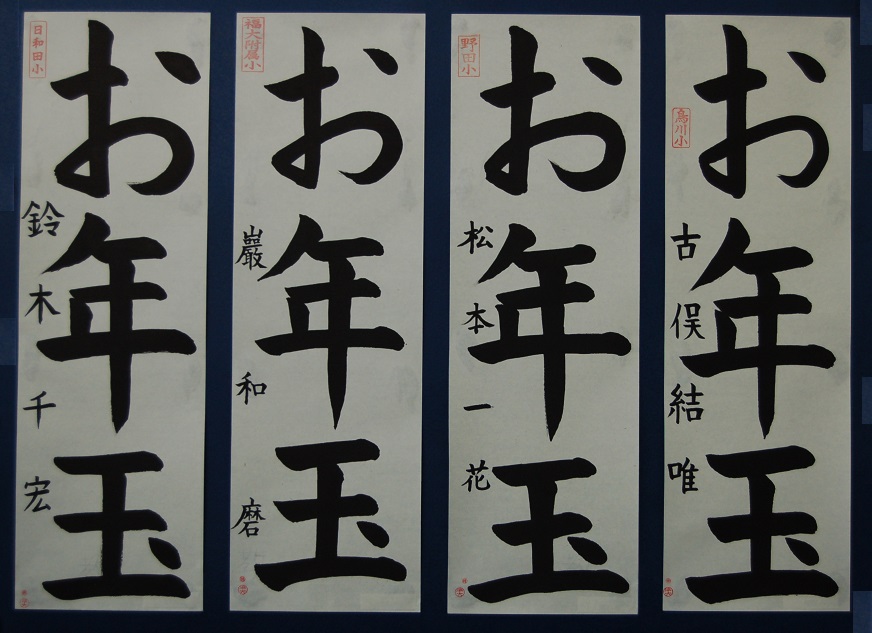 日和田小
お年玉
鈴木千宏
福大附属小
お年玉
巖和磨
野田小
お年玉
松本一花
鳥川小
お年玉
古俣結唯